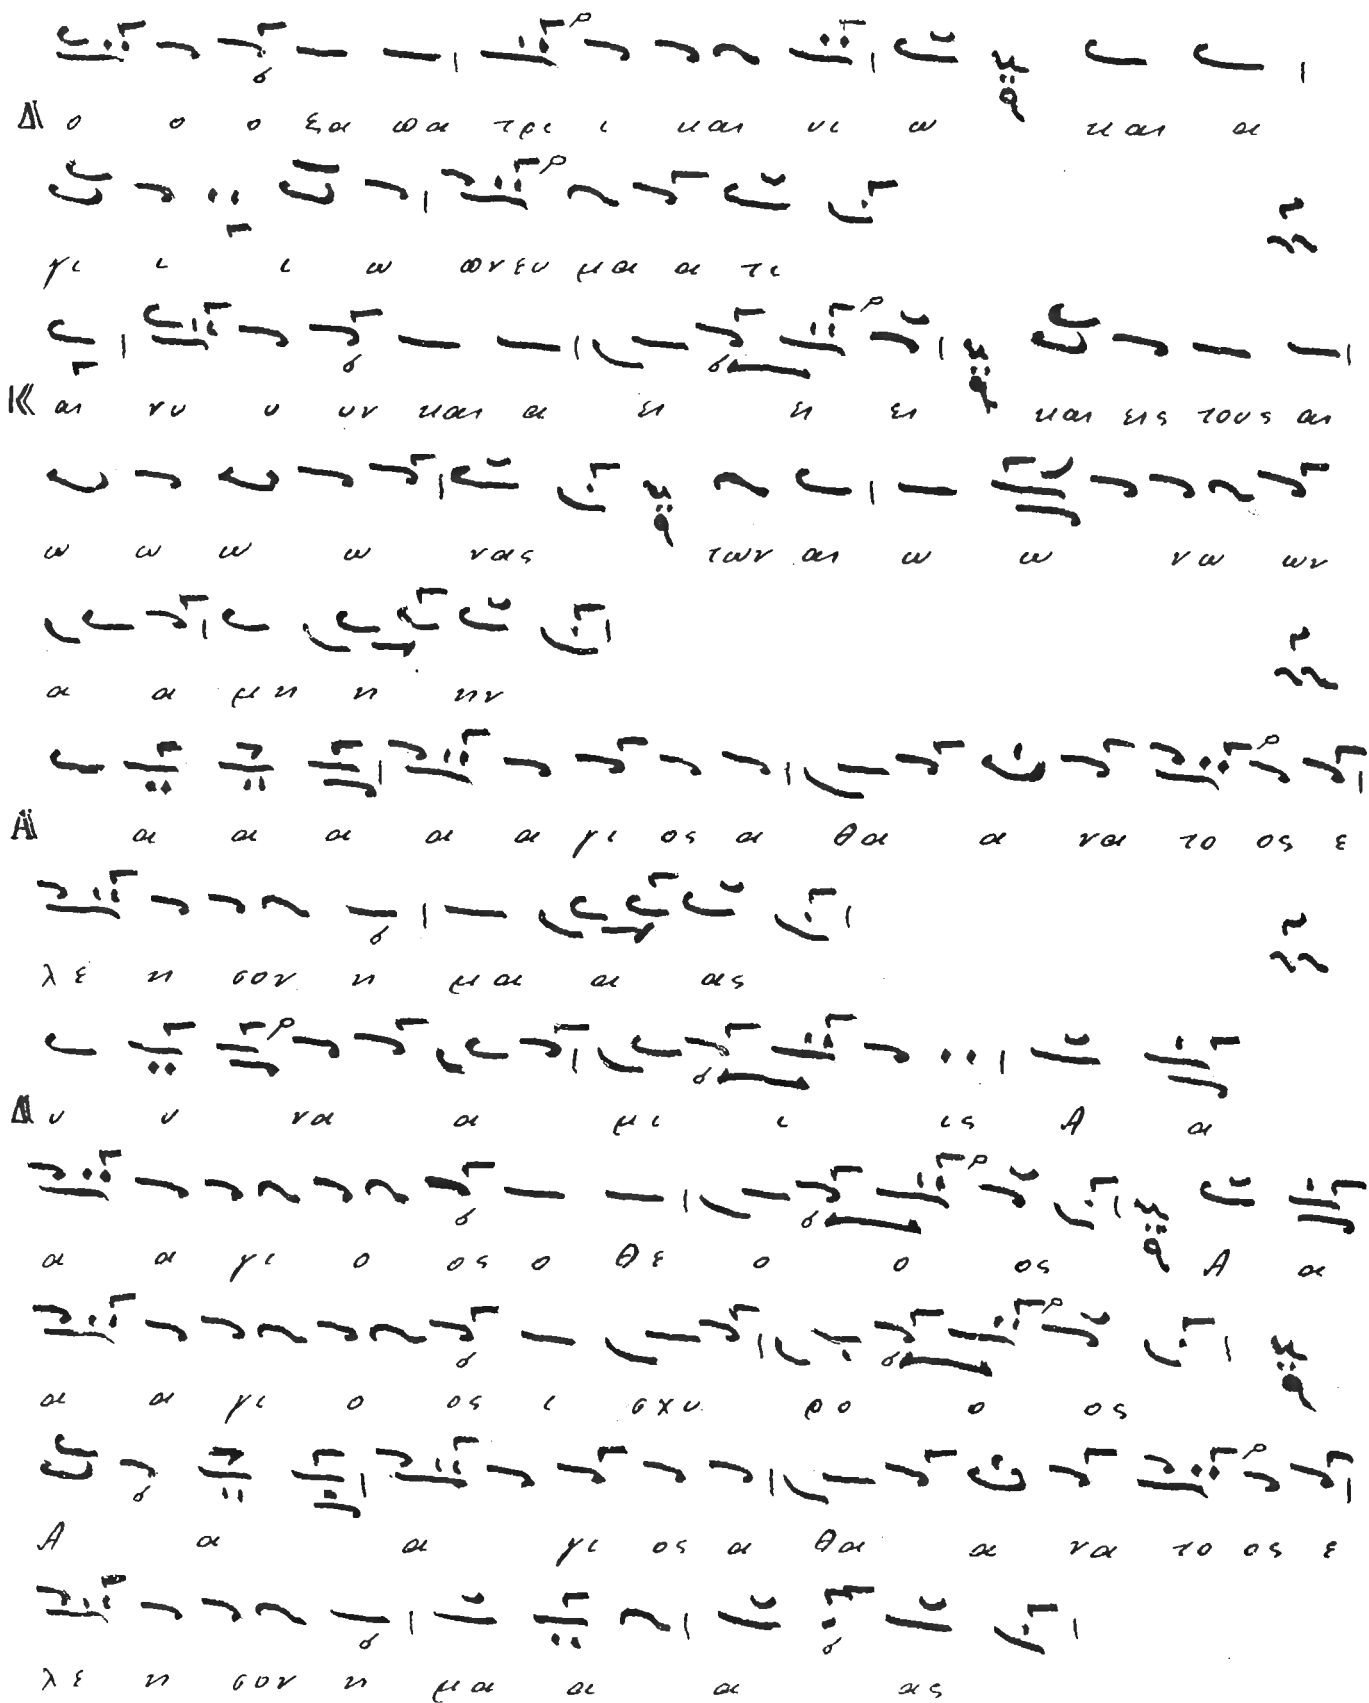 Δ ο ο ο ξα πα τρι ι και υι ω και α
γι ι ι ω πνευ μα α τι
Κ αι νυ υ υν και α ει ει ει και εις τους αι
ω ω ω ω νας των αι ω ω νω ων
α α μη η ην
Α α α α α α γι ος α θα α να το ος ε
λε η σον η μα α ας
Δ υ υ να α μι ι ις Α α
α α γι ο ος ο Θε ο ο ος Α α
α α γι ο ος ι σχυ ρο ο ος
Α α α γι ος α θα α να το ος ε
λε η σον η μα α α ας